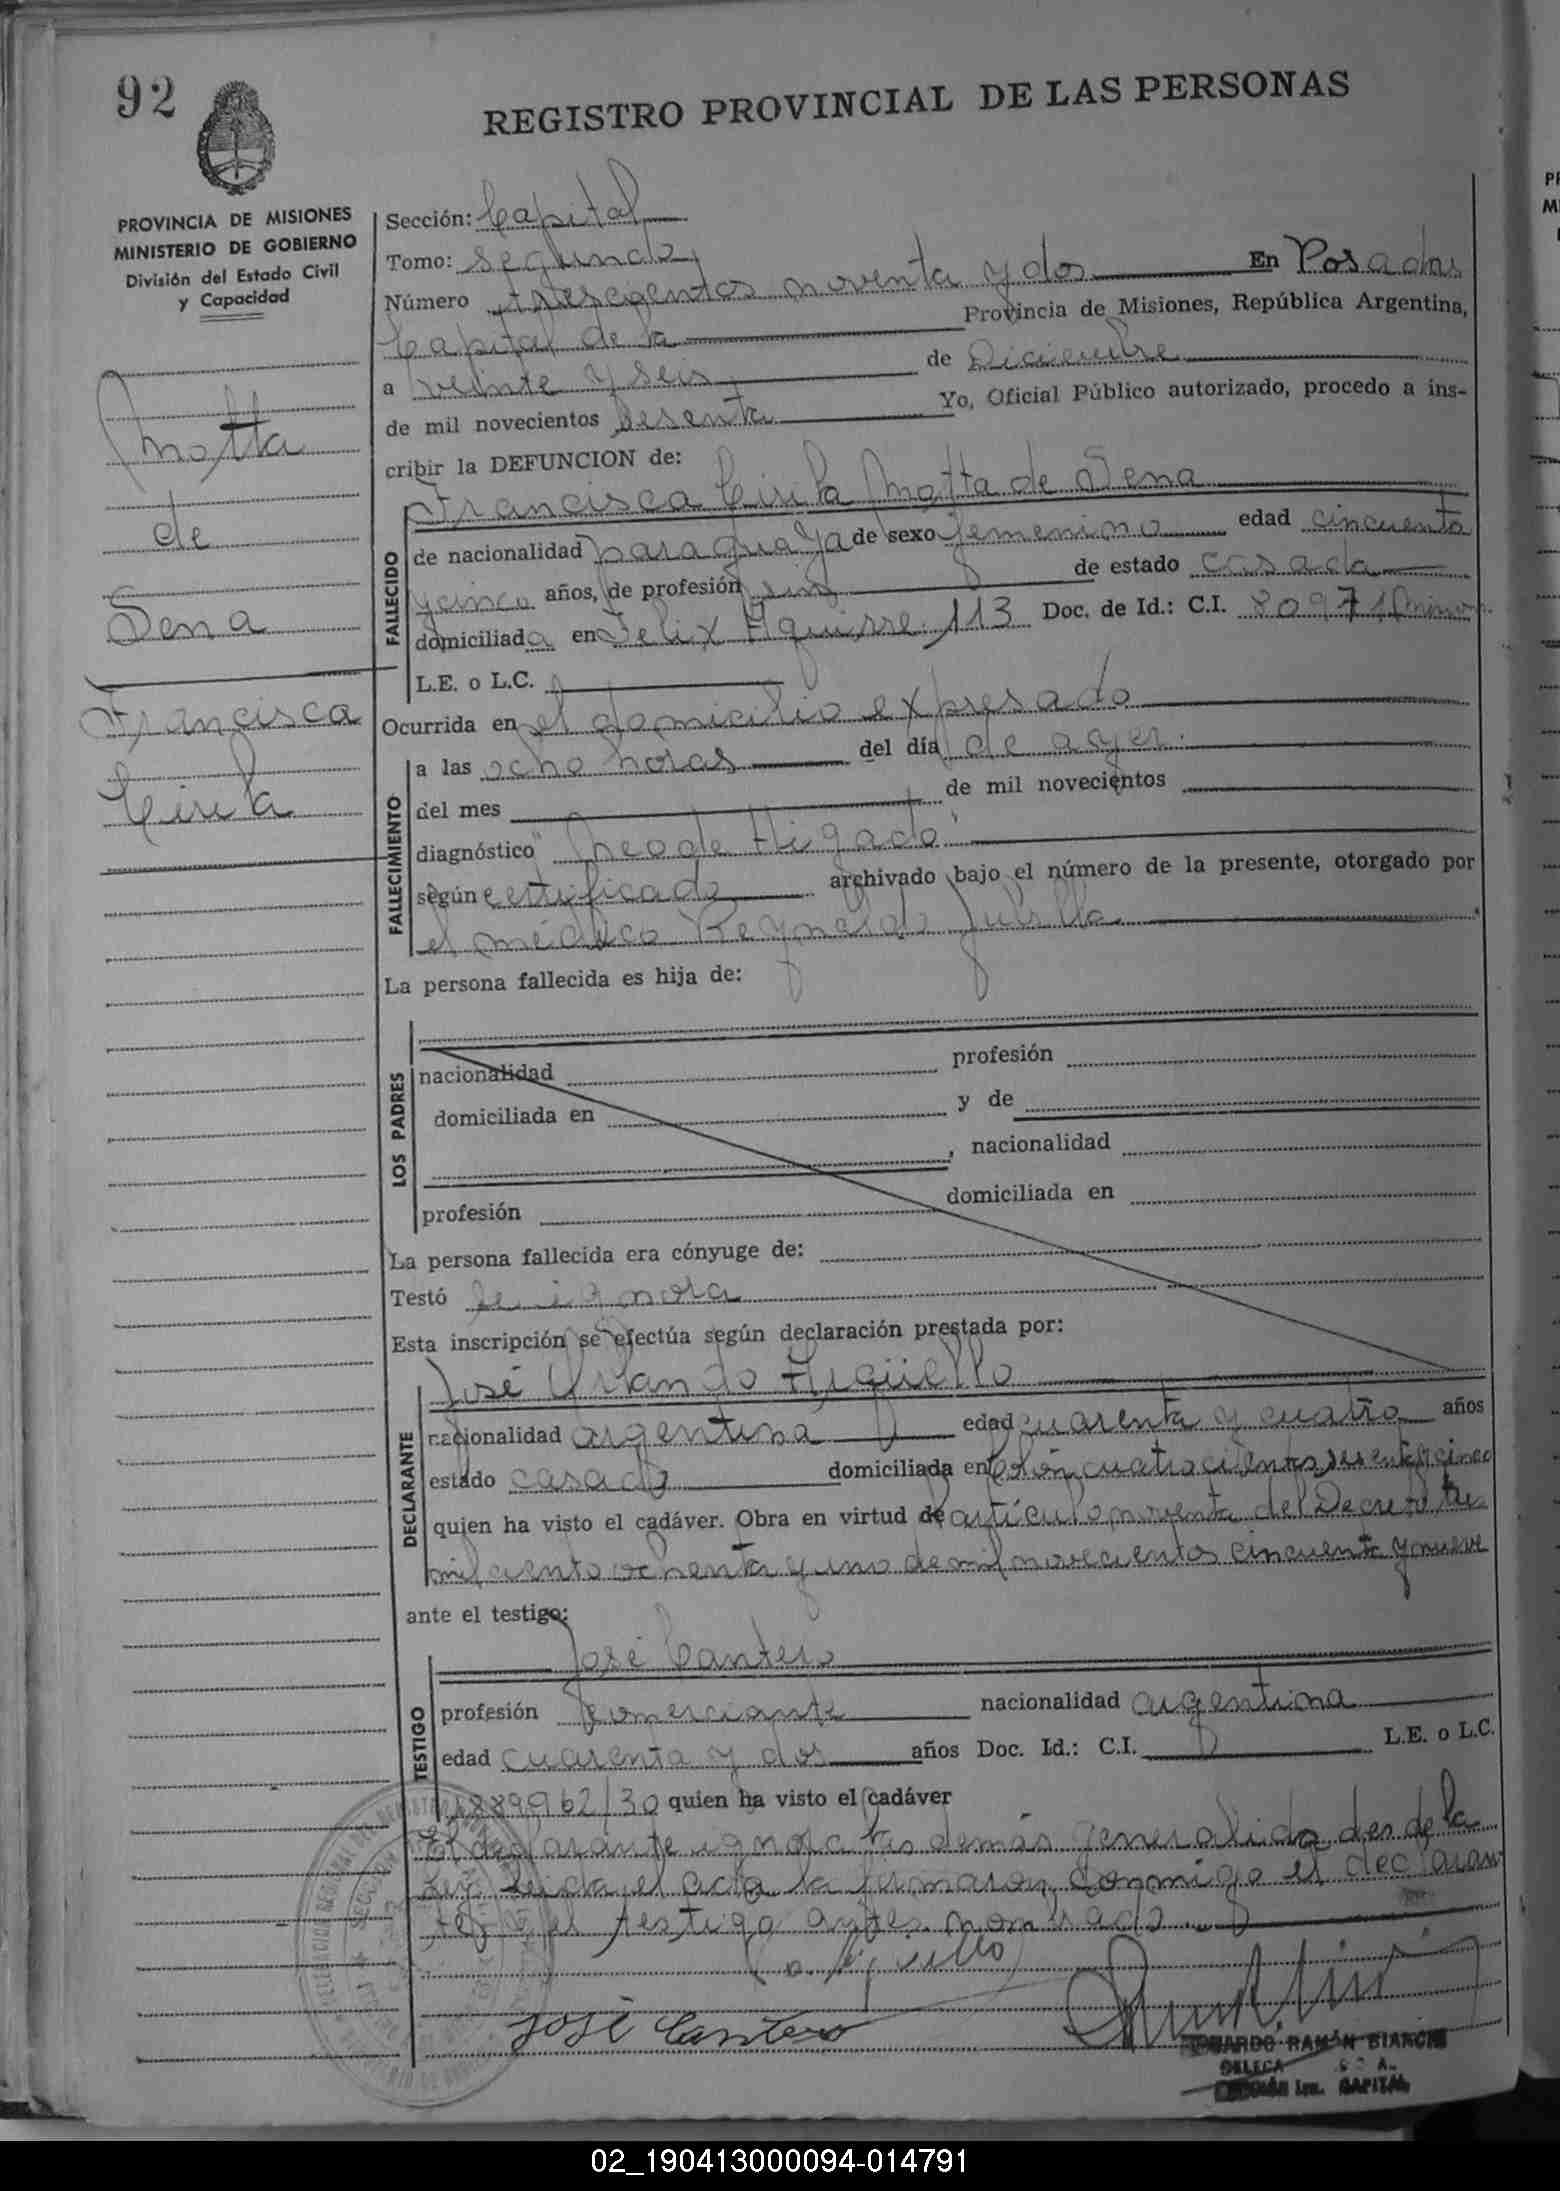 92
REGISTRO PROVINCIAL DE LAS PERSONAS
PROVINCIA DE MISIONES
MINISTERIO DE GOBIERNO
División del Estado Civil
y Capacidad
Motta
de
Sena
Francisca
Cirila
Sección: Capital
Tomo: segundo
Número trescientos noventa y dos En Posadas
Capital de la Provincia de Misiones, República Argentina,
a veinte y seis de Diciembre
de mil novecientos sesenta Yo, Oficial Público autorizado, procedo a ins-
cribir la DEFUNCION de:
Francisca Cirila Motta de Sena
FALLECIDO
de nacionalidad paraguaya de sexo femenino edad cincuenta
y cinco años, de profesión sin de estado casada
domiciliada en Felix Aguirre 113 Doc. de Id.: C.I. 80971
L.E. o L.C.
Ocurrida en el domicilio expresado
FALLECIMIENTO
a las ocho horas del día de ayer.
del mes de mil novecientos
diagnóstico "Neo de Higado"
según certificado archivado bajo el número de la presente, otorgado por
el médico Reynaldo
La persona fallecida es hija de:
LOS PADRES
nacionalidad profesión
domiciliada en y de
, nacionalidad
profesión domiciliada en
La persona fallecida era cónyuge de:
Testó se ignora
Esta inscripción se efectúa según declaración prestada por:
José Orlando Argüello
DECLARANTE
nacionalidad argentina edad cuarenta y cuatro años
estado casado domiciliada en Colón cuatrocientos sesenta y cinco
quien ha visto el cadáver. Obra en virtud de artículo noventa del Decreto tres
mil ciento ochenta y uno de mil novecientos cincuenta y nueve
ante el testigo:
José Cantero
TESTIGO
profesión comerciante nacionalidad argentina
edad cuarenta y dos años Doc. Id.: C.I. L.E. o L.C.
1889962/30 quien ha visto el cadáver
El declarante ignora las demás generalidades de la
Ley. Leida el acta la firmaron conmigo el declaran
te y el testigo antes nombrado.
José Cantero
EDUARDO RAMÓN BIANCHI
CAPITAL
02_190413000094-014791